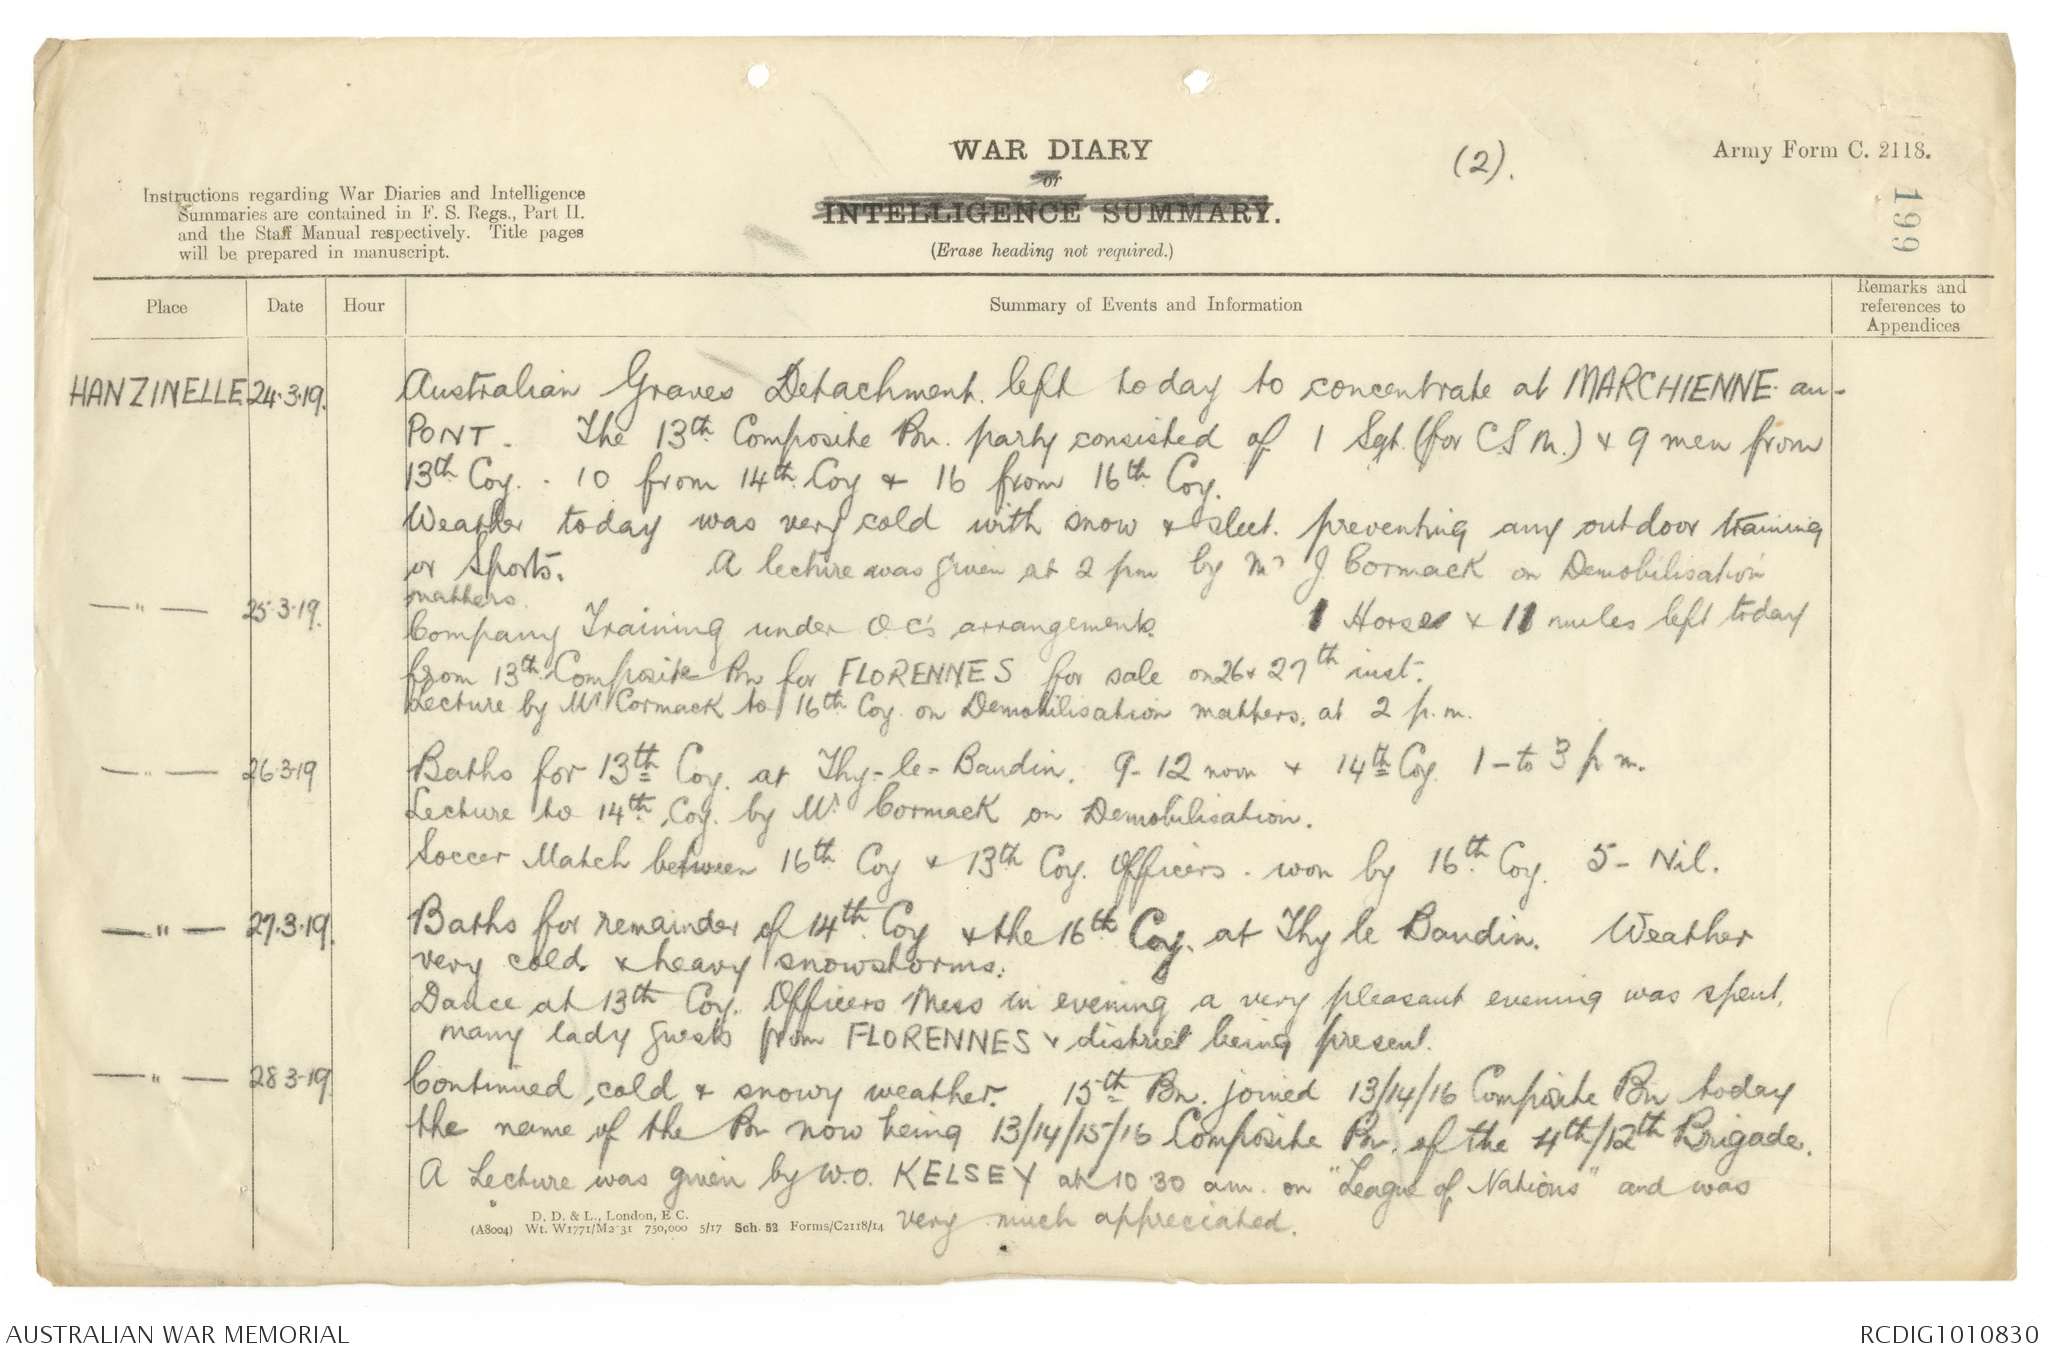 WAR DIARY
or
INTELLIGENCE SUMMARY.
(Erase heading not required.)
(2).
Army Form C. 2118.
199
Instructions regarding War Diaries and Intelligence
Summaries are contained in F. S. Regs., Part II.
and the Staff Manual respectively. Title pages
will be prepared in manuscript.
Place Date Hour Summary of Events and Information Remarks and references to Appendices
HANZINELLE 24.3.19. Australian Graves Detachment left today to concentrate at MARCHIENNE-au-
PONT. The 13th Composite Bn. party consisted of 1 Sgt. (for C.S.M.) & 9 men from
13th Coy. - 10 from 14th Coy & 16 from 16th Coy.
Weather today was very cold with snow & sleet. preventing any outdoor training
or Sports. A lecture was given at 2 pm by Mr J Cormack on Demobilisation
matters.
—"— 25.3.19. Company Training under OC's arrangements. 1 Horse & 11 mules left today
from 13th Composite Bn for FLORENNES for sale on 26 & 27th inst.
Lecture by Mr Cormack to 16th Coy. on Demobilisation matters. at 2 p.m.
—"— 26.3.19 Baths for 13th Coy. at Thy-le-Baudin. 9-12 noon & 14th Coy. 1-to 3 p m.
Lecture to 14th Coy. by Mr Cormack on Demobilisation.
Soccer Match between 16th Coy & 13th Coy. Officers. won by 16th Coy. 5-Nil.
—"— 27.3.19. Baths for remainder of 14th Coy & the 16th Coy. at Thy le Baudin. Weather
very cold. & heavy snowstorms.
Dance at 13th Coy. Officers Mess in evening a very pleasant evening was spent.
many lady guests from FLORENNES & district being present.
—"— 28.3.19 Continued cold & snowy weather. 15th Bn. joined 13/14/16 Composite Bn today
the name of the Bn now being 13/14/15/16 Composite Bn. of the 4th/12th Brigade.
A Lecture was given by W.O. KELSEY at 10.30 am. on "League of Nations" and was
very much appreciated.
D. D. & L., London, E.C.
(A8004) Wt. W1771/M2 31 750,000 5/17 Sch. 52 Forms/C2118/14
AUSTRALIAN WAR MEMORIAL
RCDIG1010830